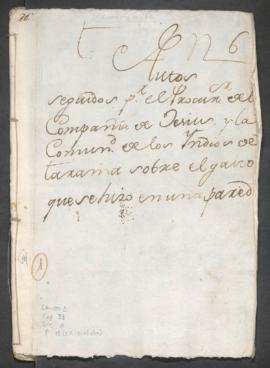 26
t. A N 6
Autos
seguidos pr. el Procur.or de la
Compañia de Jesus, y la
Comun.d de los Yndios de
tarama sobre el gasto
que se hizo en una pared
1